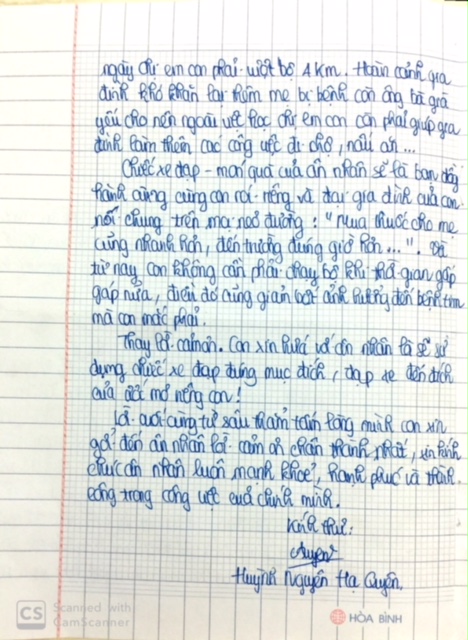 ngày chị em con phải vượt bộ 4 km. Hoàn cảnh gia
đình khó khăn lại thêm mẹ bị bệnh còn ông bà già
yếu cho nên ngoài việc học chị em con còn phải giúp gia
đình làm thêm các công việc đi chợ, nấu ăn...
Chiếc xe đạp - món quà của ân nhân sẽ là bạn đồng
hành cùng cùng con nói riêng và đại gia đình của con
nói chung trên mọi nẻo đường: "Mua thuốc cho mẹ
cũng nhanh hơn, đến trường đúng giờ hơn...". Và
từ nay con không cần phải chạy bộ khi thời gian gấp
gáp nữa, điều đó cũng giảm bớt ảnh hưởng đến bệnh tim
mà con mắc phải.
Thay lời cảm ơn. Con xin hứa với ân nhân là sẽ sử
dụng chiếc xe đạp đúng mục đích, đạp xe đến đích
của ước mơ riêng con!
Lời cuối cùng từ sâu thẳm tấm lòng mình con xin
gởi đến ân nhân lời cảm ơn chân thành nhất, xin kính
chúc ân nhân luôn mạnh khoẻ, hạnh phúc và thành
công trong công việc của chính mình.
Kính thư:
Quyên
Huỳnh Nguyễn Hạ Quyên.
CS Scanned with
CamScanner
HÒA BÌNH